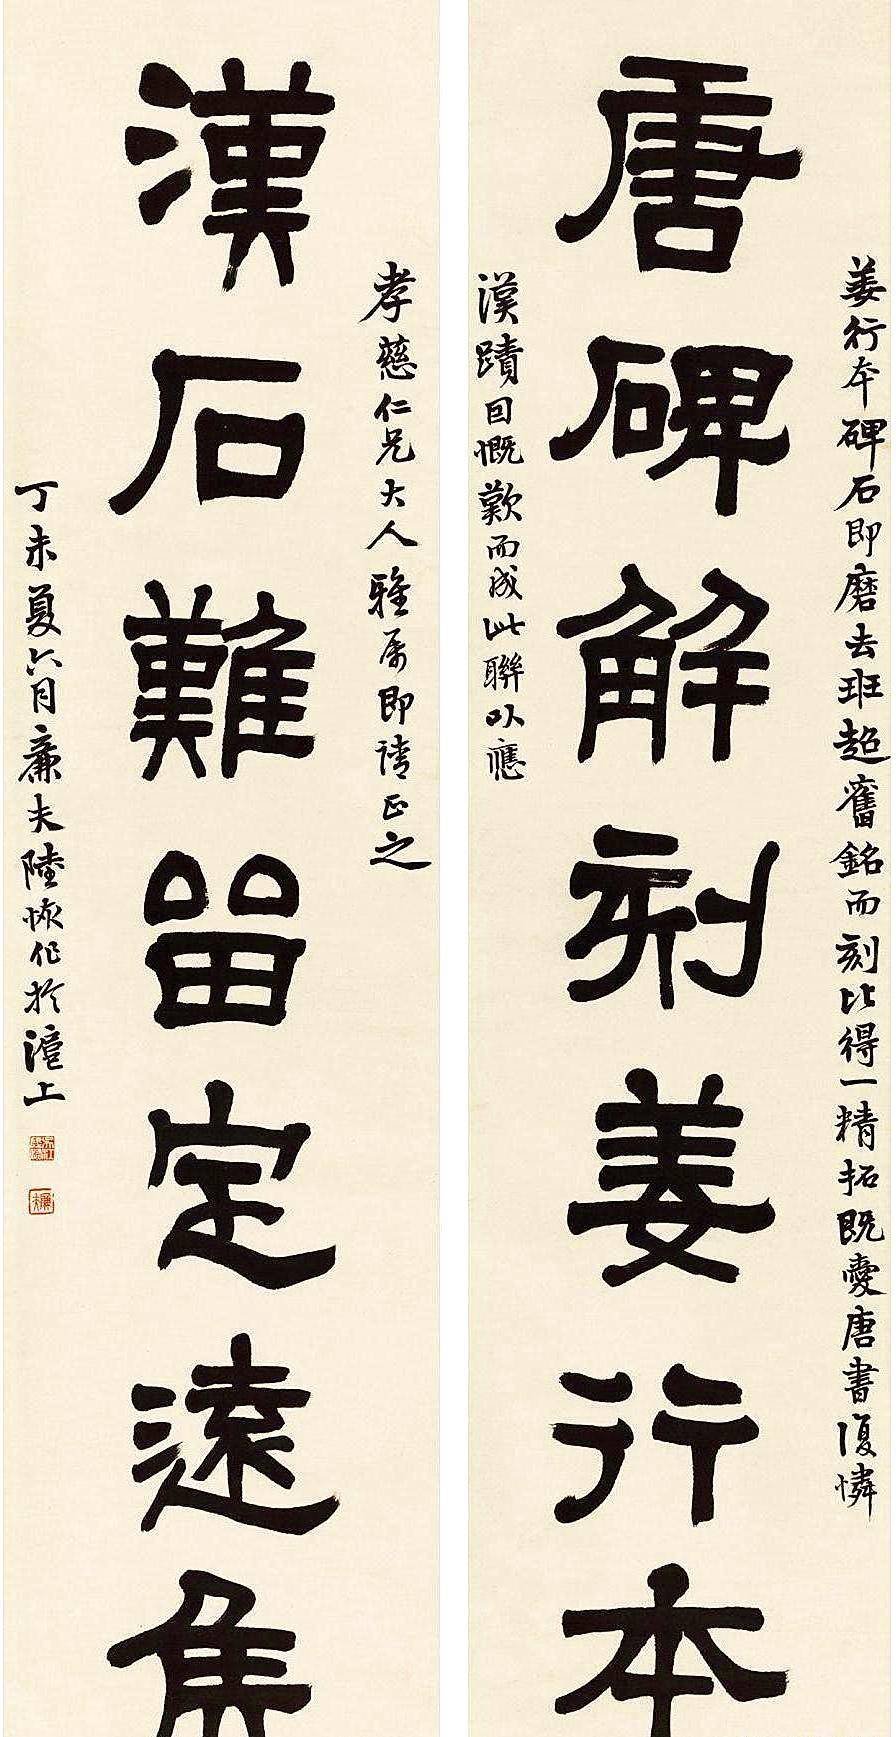 姜行本碑石即磨去班超舊銘而刻比得一精拓既愛唐書復憐
唐碑解刻姜行本
漢蹟囙慨歎而成此聯以應
孝慈仁兄大人雅属即請正之
漢石難畱定遠矦
丁未夏六月廉夫陸恢作於滬上